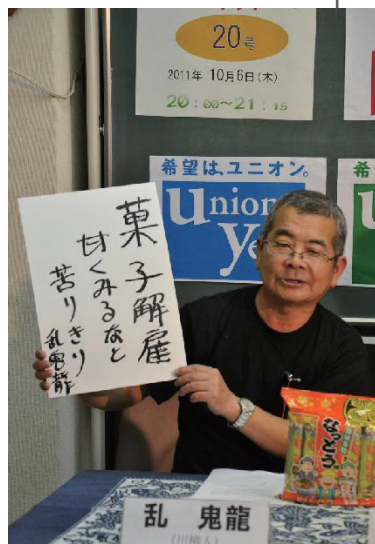 20号
2011年 10月6日(木)
20:00～21:15
希望は、ユニオン。
union
Ye
希
U
菓子解雇
甘くみるなと
苦りきり
乱鬼龍
なっとう
乱 鬼龍
(川柳人)